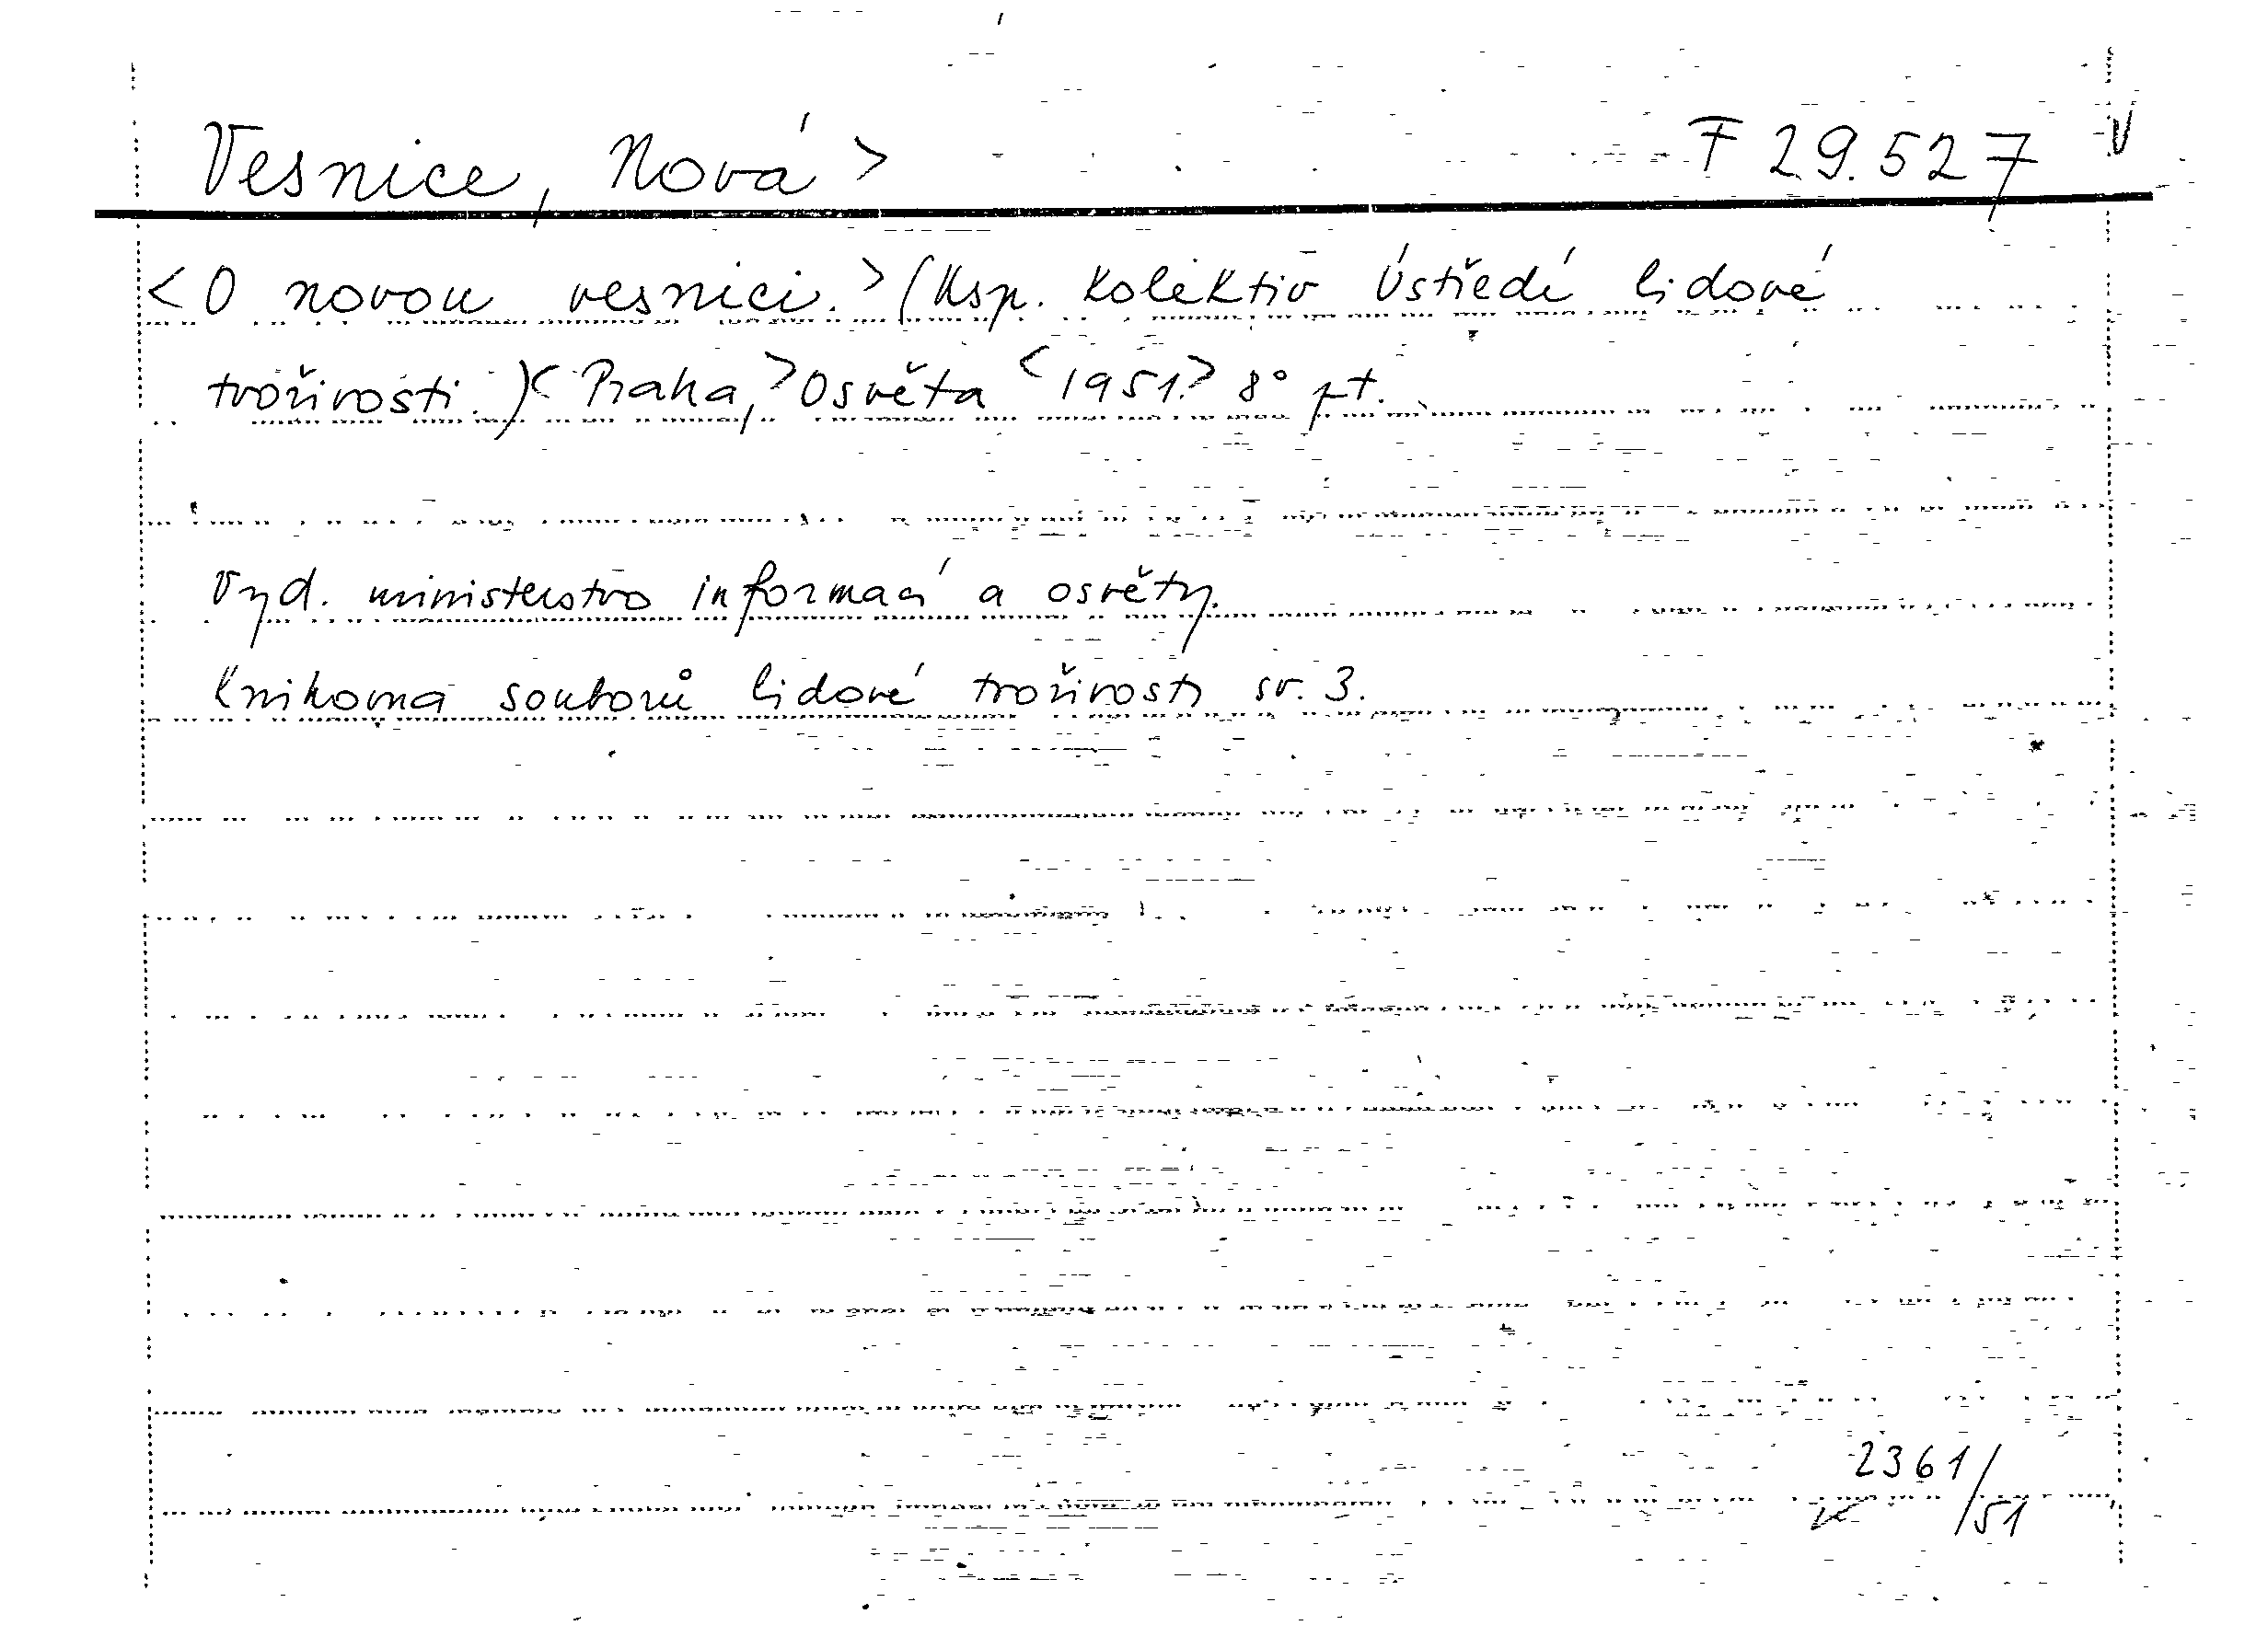 Vesnice, Nová > F 29.527 V
<O novou vesnici.> (Usp. kolektiv Ústředí lidové
tvořivosti.) <Praha,> Osvěta <1951.> 8° pt.
Vyd. ministerstvo informací a osvěty.
Knihovna souborů lidové tvořivosti sv. 3.
2361/51